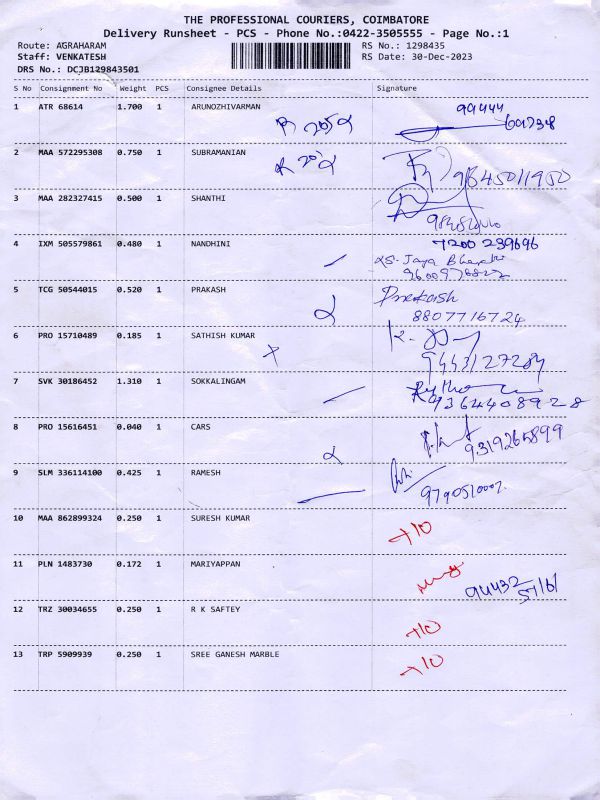 THE PROFESSIONAL COURIERS, COIMBATORE
Delivery Runsheet - PCS - Phone No.:0422-3505555 - Page No.:1
Route: AGRAHARAM RS No.: 1298435
Staff: VENKATESH RS Date: 30-Dec-2023
DRS No.: DCJB129843501
S No Consignment No Weight PCS Consignee Details Signature
1 ATR 68614 1.700 1 ARUNOZHIVARMAN
99444
2 MAA 572295308 0.750 1 SUBRAMANIAN
3 MAA 282327415 0.500 1 SHANTHI
4 IXM 505579861 0.480 1 NANDHINI 7200 239696
5 TCG 50544015 0.520 1 PRAKASH Prakash
8807716724
6 PRO 15710489 0.185 1 SATHISH KUMAR
7 SVK 30186452 1.310 1 SOKKALINGAM
9364408928
8 PRO 15616451 0.040 1 CARS
9319265899
9 SLM 336114100 0.425 1 RAMESH
10 MAA 862899324 0.250 1 SURESH KUMAR
11 PLN 1483730 0.172 1 MARIYAPPAN
94432
12 TRZ 30034655 0.250 1 R K SAFTEY
13 TRP 5909939 0.250 1 SREE GANESH MARBLE